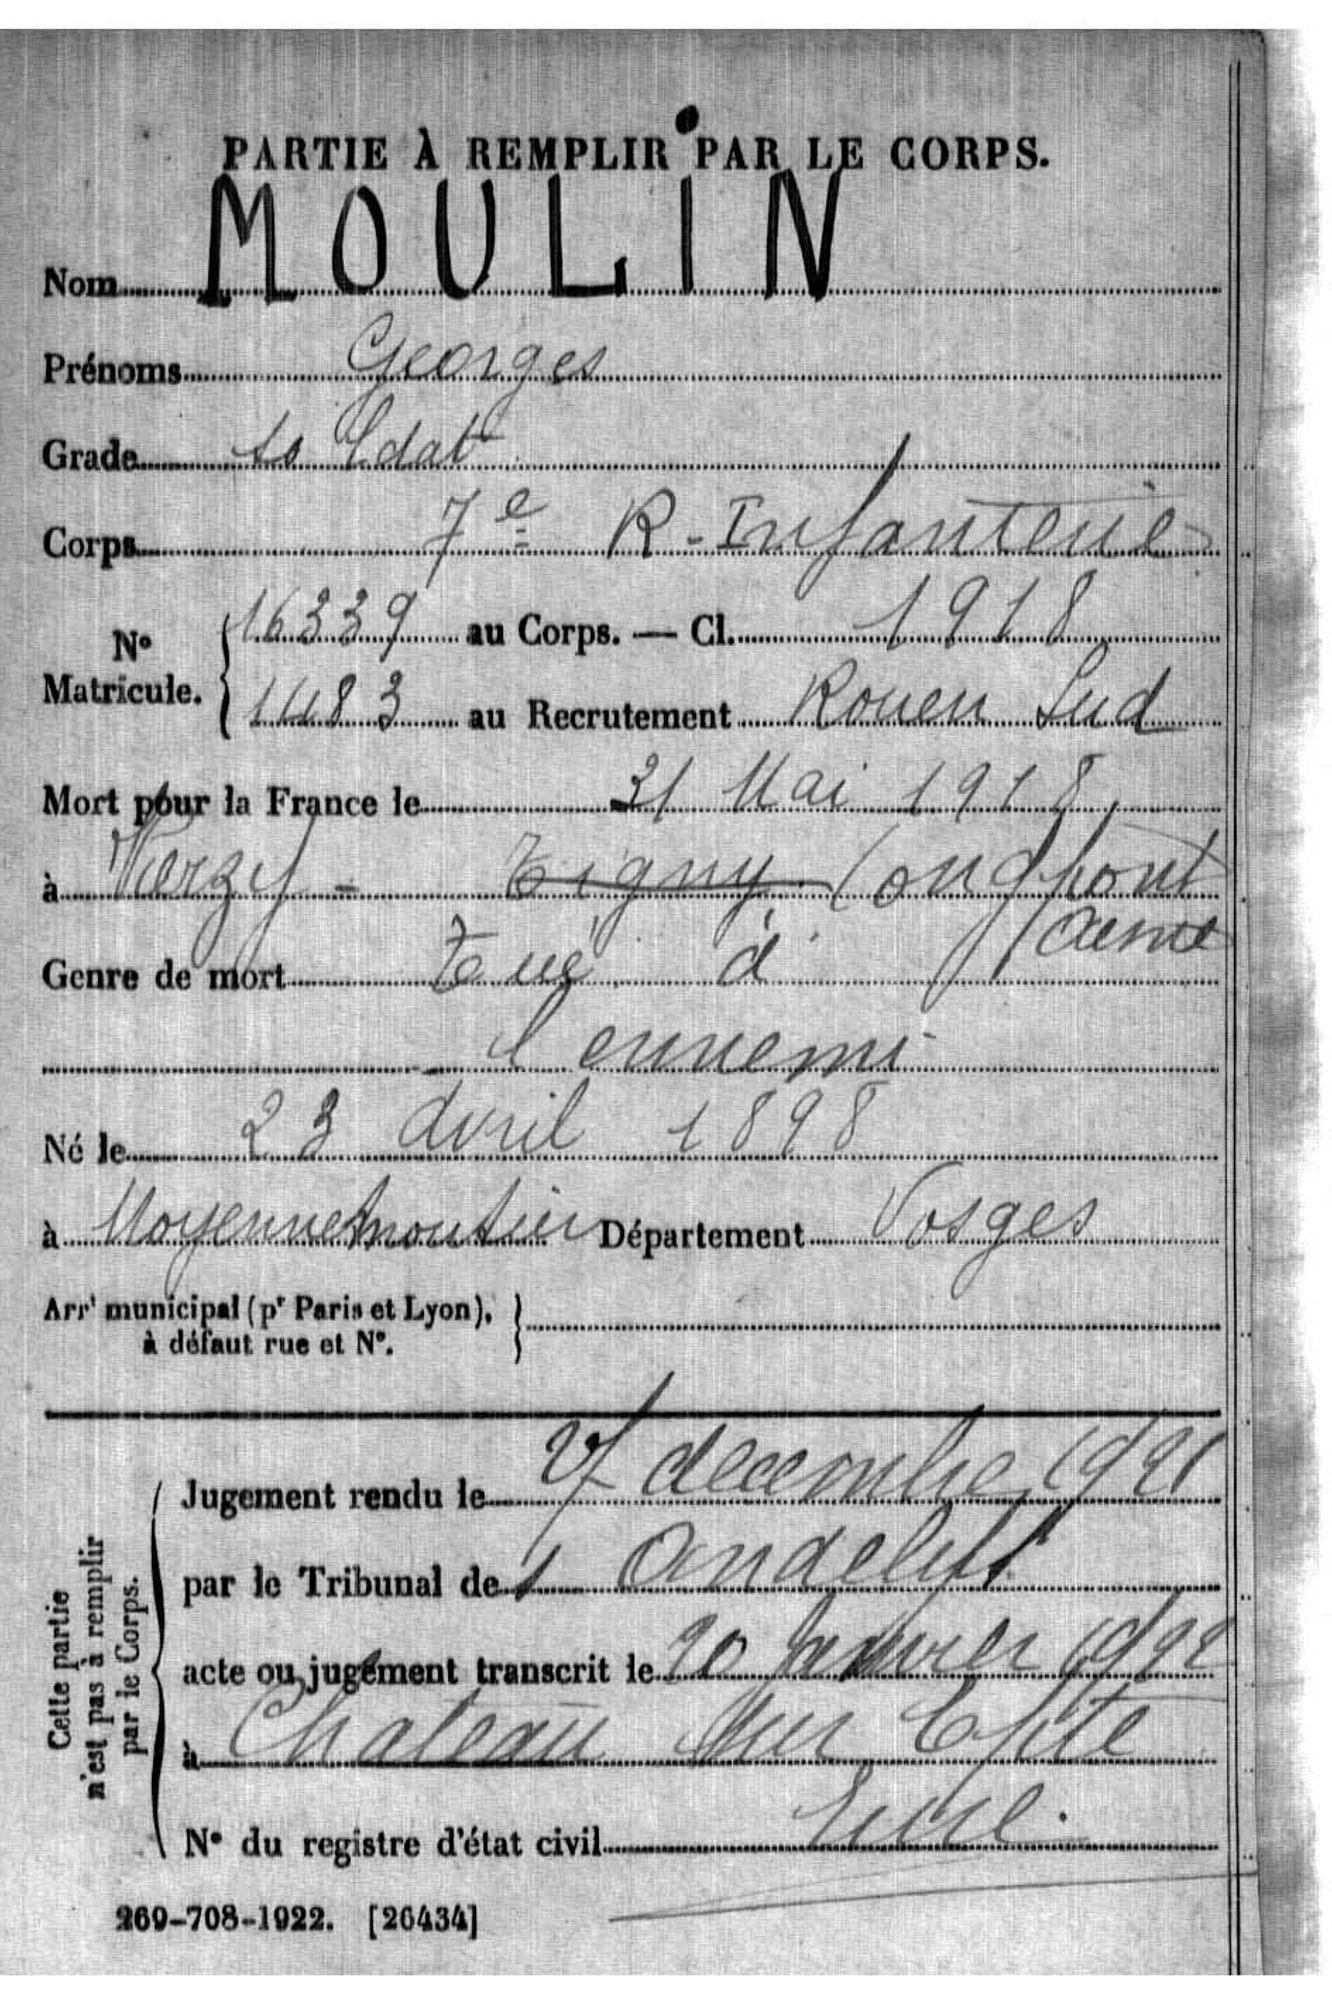 PARTIE À REMPLIR PAR LE CORPS.
Nom MOULIN
Prénoms Georges
Grade soldat
Corps 7e R-Infanterie
No Matricule. 16339 au Corps. — Cl. 1918
1483 au Recrutement Rouen Sud
Mort pour la France le 31 Mai 1918
à Vierzy - Tigny Longpont
Aisne
Genre de mort Tué à
l'ennemi
Né le 23 Avril 1898
à Moyenmoutier Département Vosges
Arrt municipal (pr Paris et Lyon),
à défaut rue et No.
Cette partie
n'est pas à remplir
par le Corps.
Jugement rendu le 27 decembre 1921
par le Tribunal des Andelys
acte ou jugement transcrit le 20 janvier 1922
à Chateau sur Epte
No du registre d'état civil Eure.
269-708-1922. [26434]